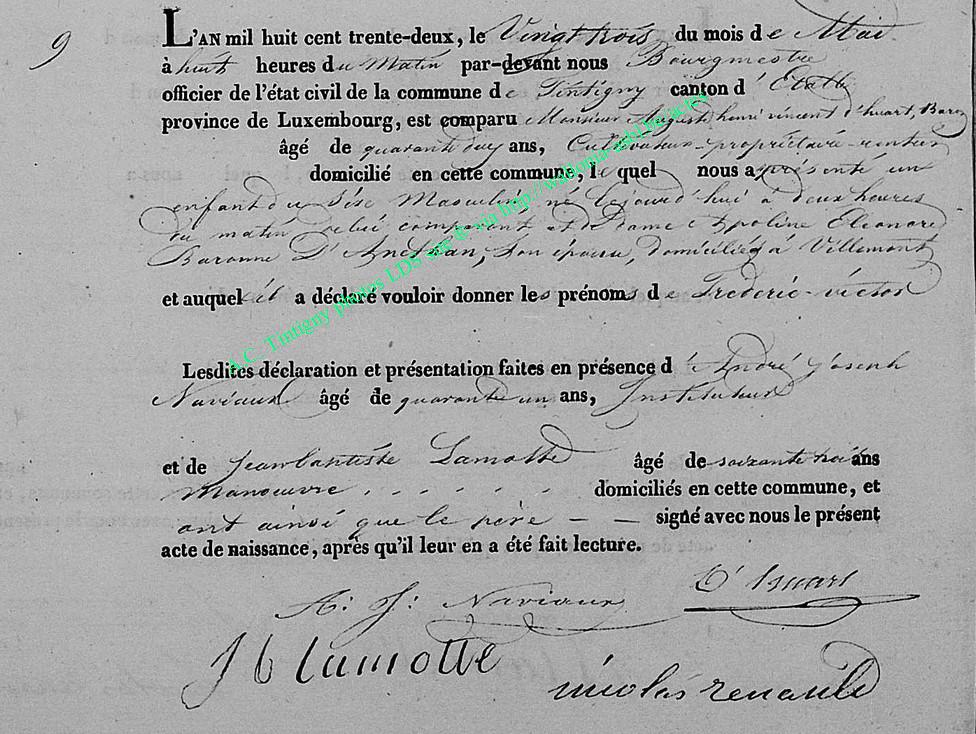 9
L'AN mil huit cent trente-deux, le Vingt trois du mois de Mai
à huit heures du Matin par-devant nous Bourgmestre
officier de l'état civil de la commune de Tintigny canton d'Etalle
province de Luxembourg, est comparu Monsieur Auguste henri vincent d'huart, Baron
âgé de quarante deux ans, Cultivateur-propriétaire-rentier
domicilié en cette commune, le quel nous a présenté un
enfant du Séxe Masculin, né Cejourd'hui à deux heures
du matin celui comparant et de dame Appoline Eleonore
Baronne D'Anethan, Son épouse, domiciliés à Villemont
et auquel il a déclaré vouloir donner les prénoms de Frederic-victor
Lesdites déclaration et présentation faites en présence d'André Joseph
Naviaux âgé de quarante un ans, Instituteur
et de Jeanbaptiste Lamotte âgé de soixante trois ans
Manoeuvre domiciliés en cette commune, et
ont ainsi que le père - - signé avec nous le présent
acte de naissance, après qu'il leur en a été fait lecture.
D'huart
A: J: Naviaux
J b lamotte
nicolas renauld
A.C. Tintigny photos LDS via http://wallonia-